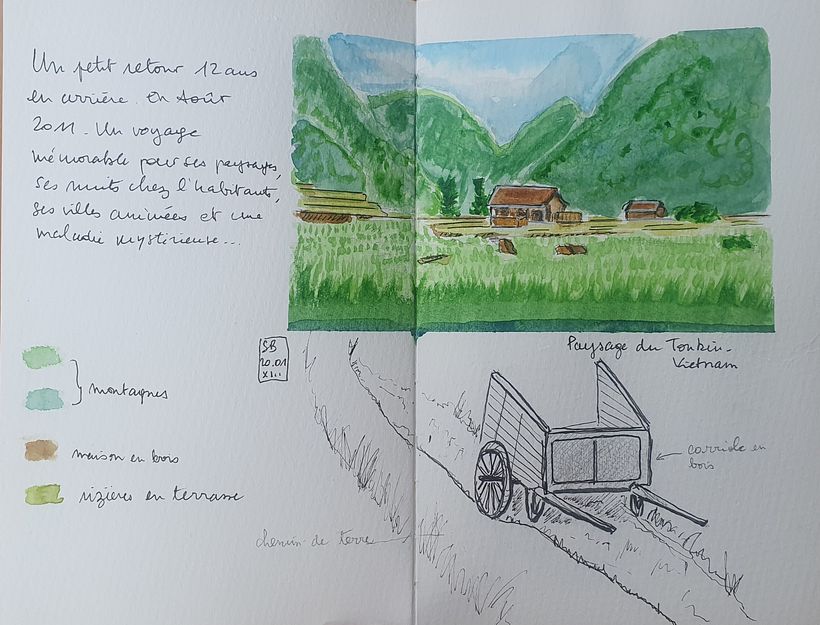 Un petit retour 12 ans
en arrière. En Août
2011. Un voyage
mémorable pour ses paysages,
ses nuits chez l'habitants,
ses villes animées et une
maladie mystérieuse...
SB
20.01
XIII
Paysage du Tonkin.
Vietnam
montagnes
maison en bois
rizières en terrasse
carriole en
bois
chemin de terre